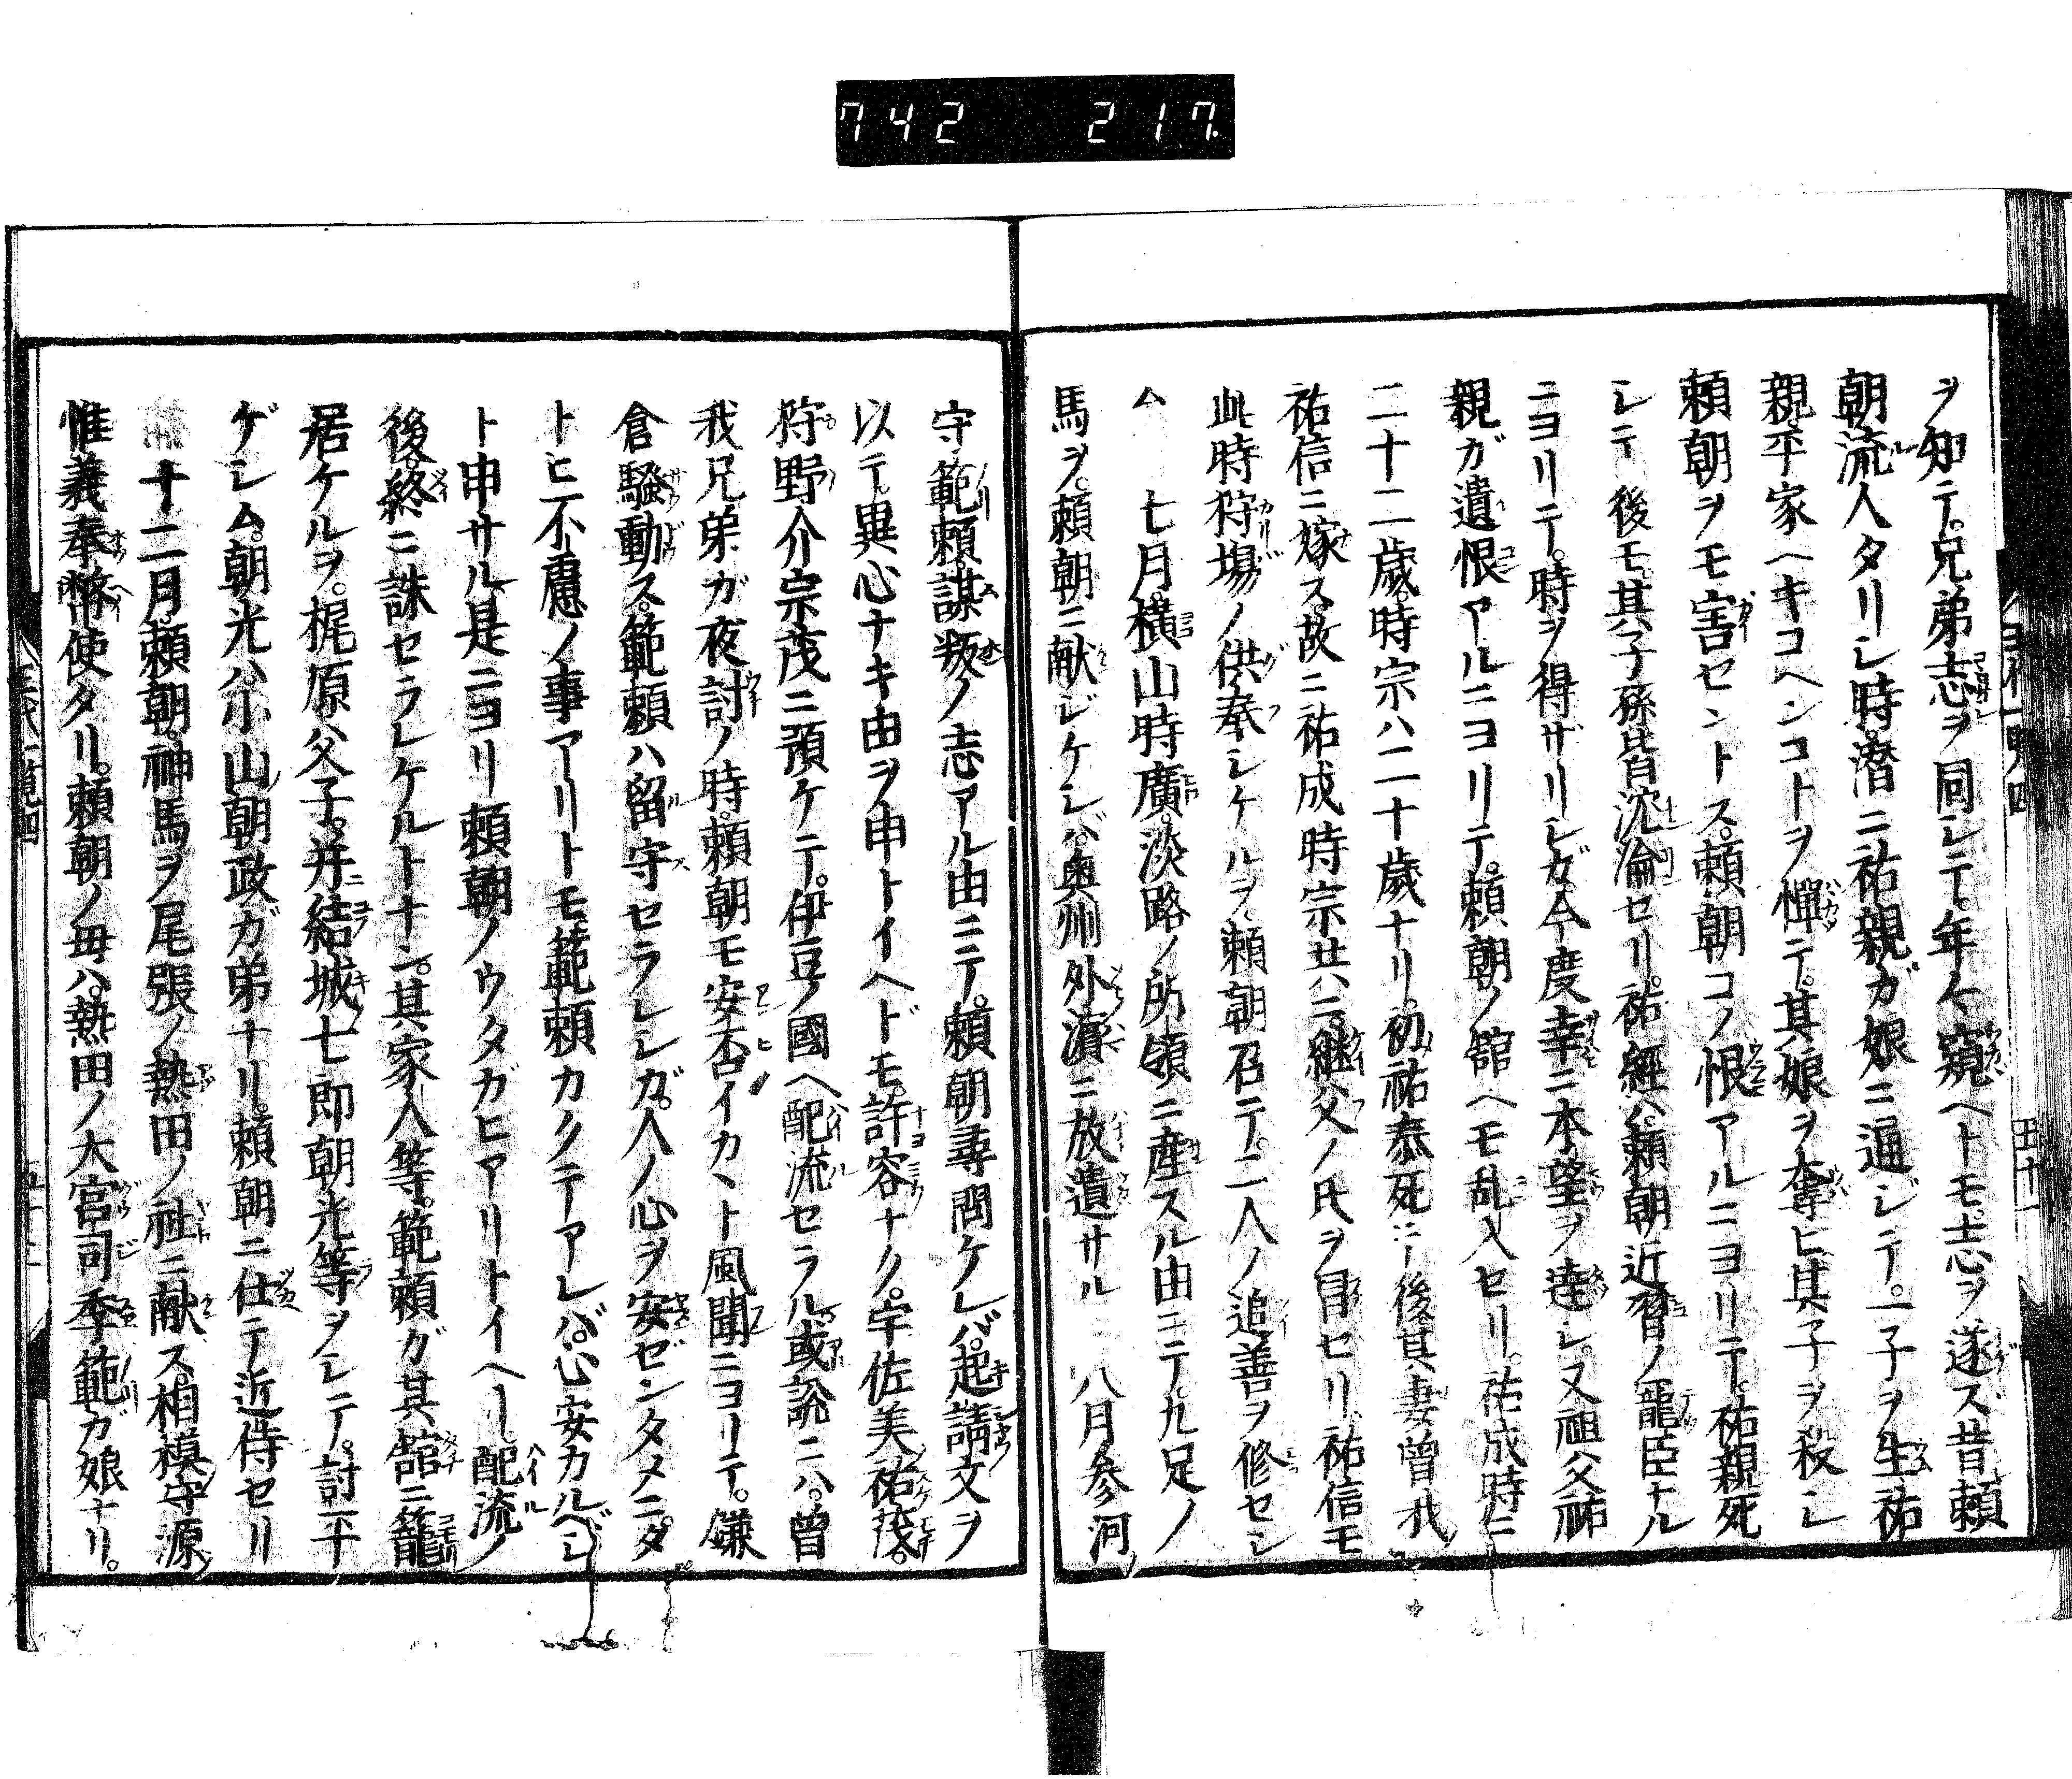 742 217
ヲ知テ。兄弟志ヲ同シテ。年ケ窺ヘトモ。志ヲ遂ズ昔頼
朝流人タリシ時。潜ニ祐親ガ娘ニ通ジテ。一子ヲ生祐
親。平家ヘキコヘンコトヲ憚テ。其娘ヲ奪ヒ。其子ヲ殺シ
頼朝ヲモ害セントス。頼朝コノ恨アルニヨリテ。祐親死
シテ後モ。其子孫皆沈淪セリ。祐經ハ。頼朝近習ノ寵臣ナル
ニヨリテ。時ヲ得ザリシガ。今度幸ニ本望ヲ達シ。又祖父祐
親ガ遺恨アルニヨリテ。頼朝ノ舘ヘモ乱入セリ。祐成時ニ
二十二歳。時宗ハ二十歳ナリ。初祐泰死ニテ後。其妻曽我
祐信ニ嫁ス。故ニ祐成時宗共ニ。継父ノ氏ヲ冒セリ。祐信モ
此時狩場ノ供奉シケルヲ。頼朝召テ。二人ノ追善ヲ修セシ
ム 七月。横山時廣。淡路ノ所領ニ産スル由ニテ。九足ノ
馬ヲ。頼朝ニ献ジケレバ。奥州外濱ニ放遣サル 八月参河
守範頼。謀叛ノ志アル由ニテ。頼朝尋問ケレバ。起請文ヲ
以テ。異心ナキ由ヲ申トイヘドモ。許容ナク。宇佐美祐茂。
狩野介宗茂ニ預ケテ。伊豆ノ國ヘ配流セラル。或説ニハ。曽
我兄弟ガ夜討ノ時。頼朝モ安否イカヽト風聞ニヨリテ。鎌
倉騒動ス。範頼ハ留守セラレシガ。人ノ心ヲ安ゼンタメニ。タ
トヒ不慮ノ事アリトモ範頼カクテアレバ。心安カルベシ
ト申サル是ニヨリ頼朝ノウタガヒアリトイヘリ。配流ノ
後。終ニ誅セラレケルトナン。其家人等。範頼ガ其舘ニ籠
居ケルヲ。梶原父子。并結城七郎朝光等ヲシテ。討平
ゲシム。朝光ハ。小山朝政ガ弟ナリ。頼朝ニ仕テ近侍セリ
十二月。頼朝。神馬ヲ尾張ノ熱田ノ社ニ献ス。相模守源
惟義奉幣使タリ。頼朝ノ母ハ。熱田ノ大宮司季範ガ娘ナリ。